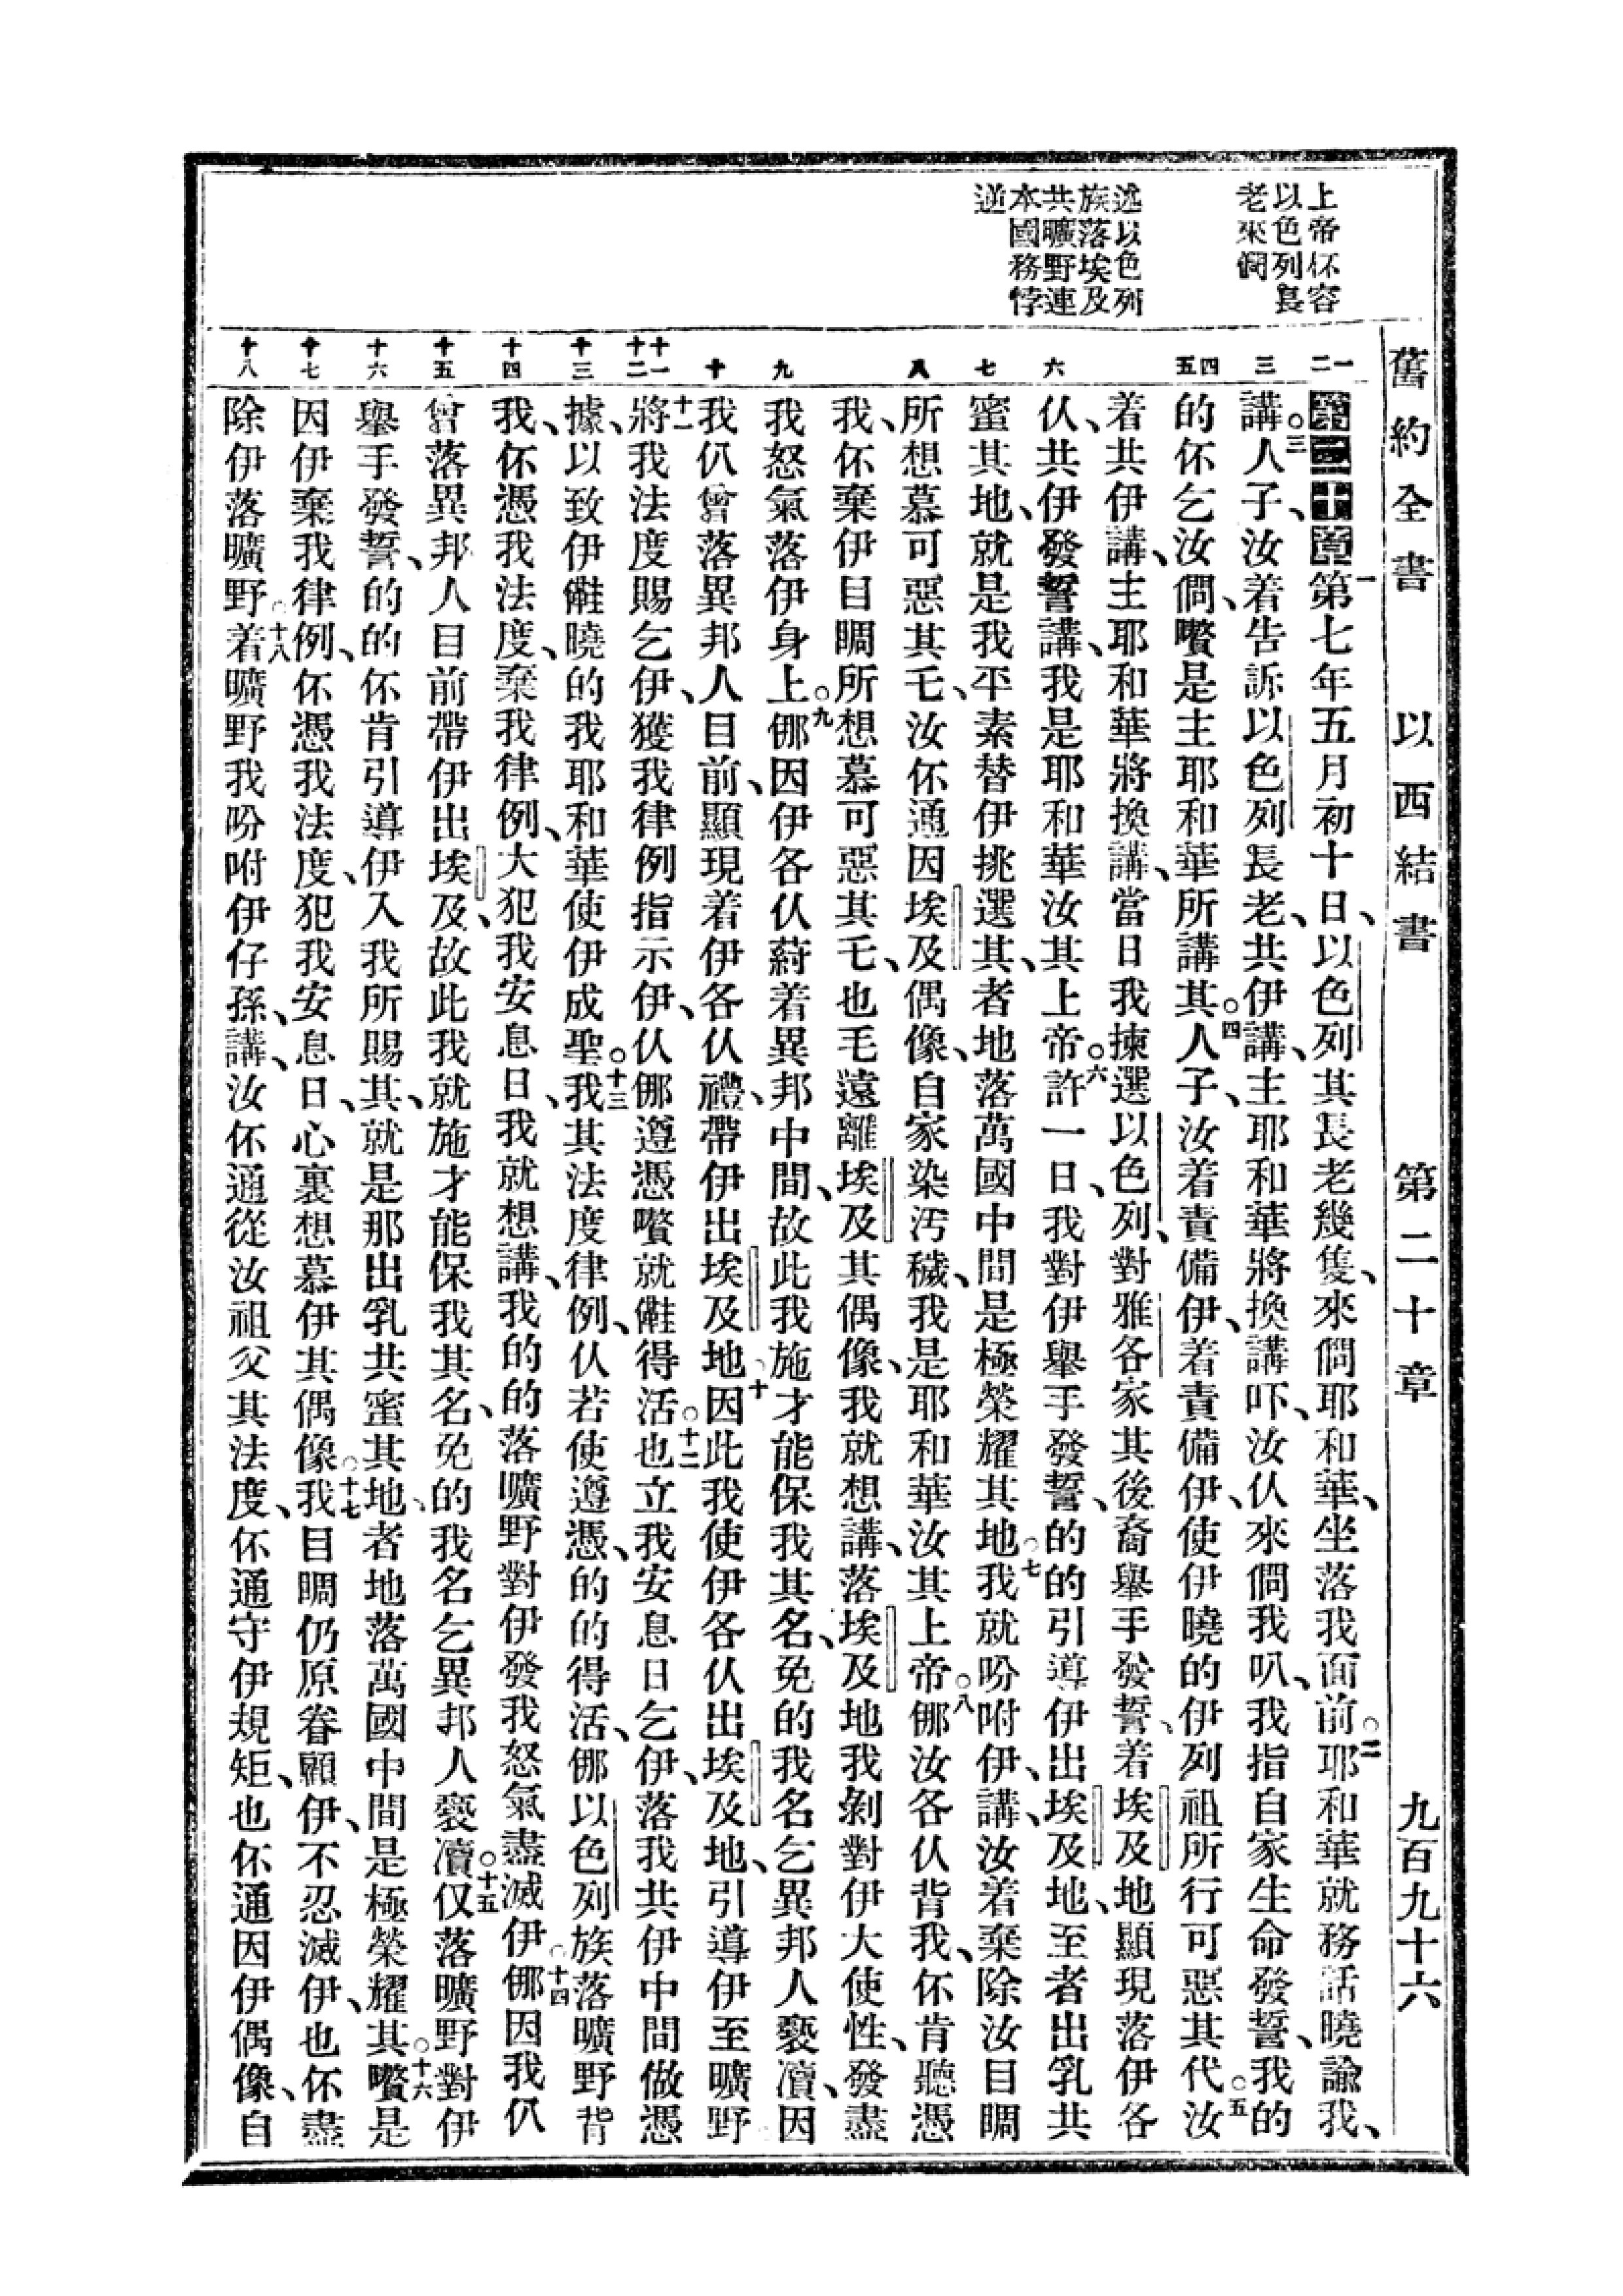 舊約全書 以西結書 第二十章 九百九十六
上帝伓容
以色列長
老來僴
述以色列
族落埃及
共曠野連
本國務悖
逆
一 二 三 四 五 六 七 八 九 十 十一 十二 十三 十四 十五 十六 十七 十八
第二十章一第七年五月初十日、以色列其長老幾隻、來僴耶和華、坐落我面前。二耶和華就務話曉諭我、
講。三人子、汝着告訴以色列長老、共伊講、主耶和華將換講吓、汝仈來僴我叭、我指自家生命發誓、我的
的伓乞汝僴、嚽是主耶和華所講其。四人子、汝着責備伊、着責備伊、使伊曉的伊列祖所行可惡其代。五汝
着共伊講、主耶和華將換講、當日我揀選以色列、對雅各家其後裔舉手發誓、着埃及地顯現落伊各
仈、共伊發誓講、我是耶和華汝其上帝。六許一日、我對伊舉手發誓、的的引導伊出埃及地、至者出乳共
蜜其地、就是我平素替伊挑選其、者地落萬國中間是極榮耀其地。七我就吩咐伊、講、汝着棄除汝目睭
所想慕可惡其乇、汝伓通因埃及偶像、自家染汚穢、我是耶和華汝其上帝。八㑚汝各仈背我、伓肯聽憑
我、伓棄伊目睭所想慕可惡其乇、也毛遠離埃及其偶像、我就想講、落埃及地我剝對伊大使性、發盡
我怒氣落伊身上。九㑚因伊各仈着異邦中間、故此我施才能保我其名、免的我名乞異邦人褻瀆、因
我仈會落異邦人目前、顯現着伊各仈禮、帶伊出埃及地。十因此我使伊各仈出埃及地、引導伊至曠野、
十一將我法度賜乞伊、獲我律例指示伊、仈㑚遵憑嚽就得活。十二也立我安息日乞伊、落我共伊中間做憑
據、以致伊曉的我耶和華使伊成聖。十三我其法度律例、仈若使遵憑、的的得活、㑚以色列族落曠野背
我、伓憑我法度、棄我律例、大犯我安息日、我就想講、我的的落曠野對伊發我怒氣盡滅伊。十四㑚因我仈
會落異邦人目前帶伊出埃及、故此我就施才能保我其名、免的我名乞異邦人褻瀆。十五仅落曠野對伊
舉手發誓、的的伓肯引導伊入我所賜其、就是那出乳共蜜其地、者地落萬國中間是極榮耀其。十六嚽是
因伊棄我律例、伓憑我法度、犯我安息日、心裏想慕伊其偶像。十七我目睭仍原眷顧伊、不忍滅伊、也伓盡
除伊落曠野。十八着曠野我吩咐伊仔孫、講、汝伓通從汝祖父其法度、伓通守伊規矩、也伓通因伊偶像、自